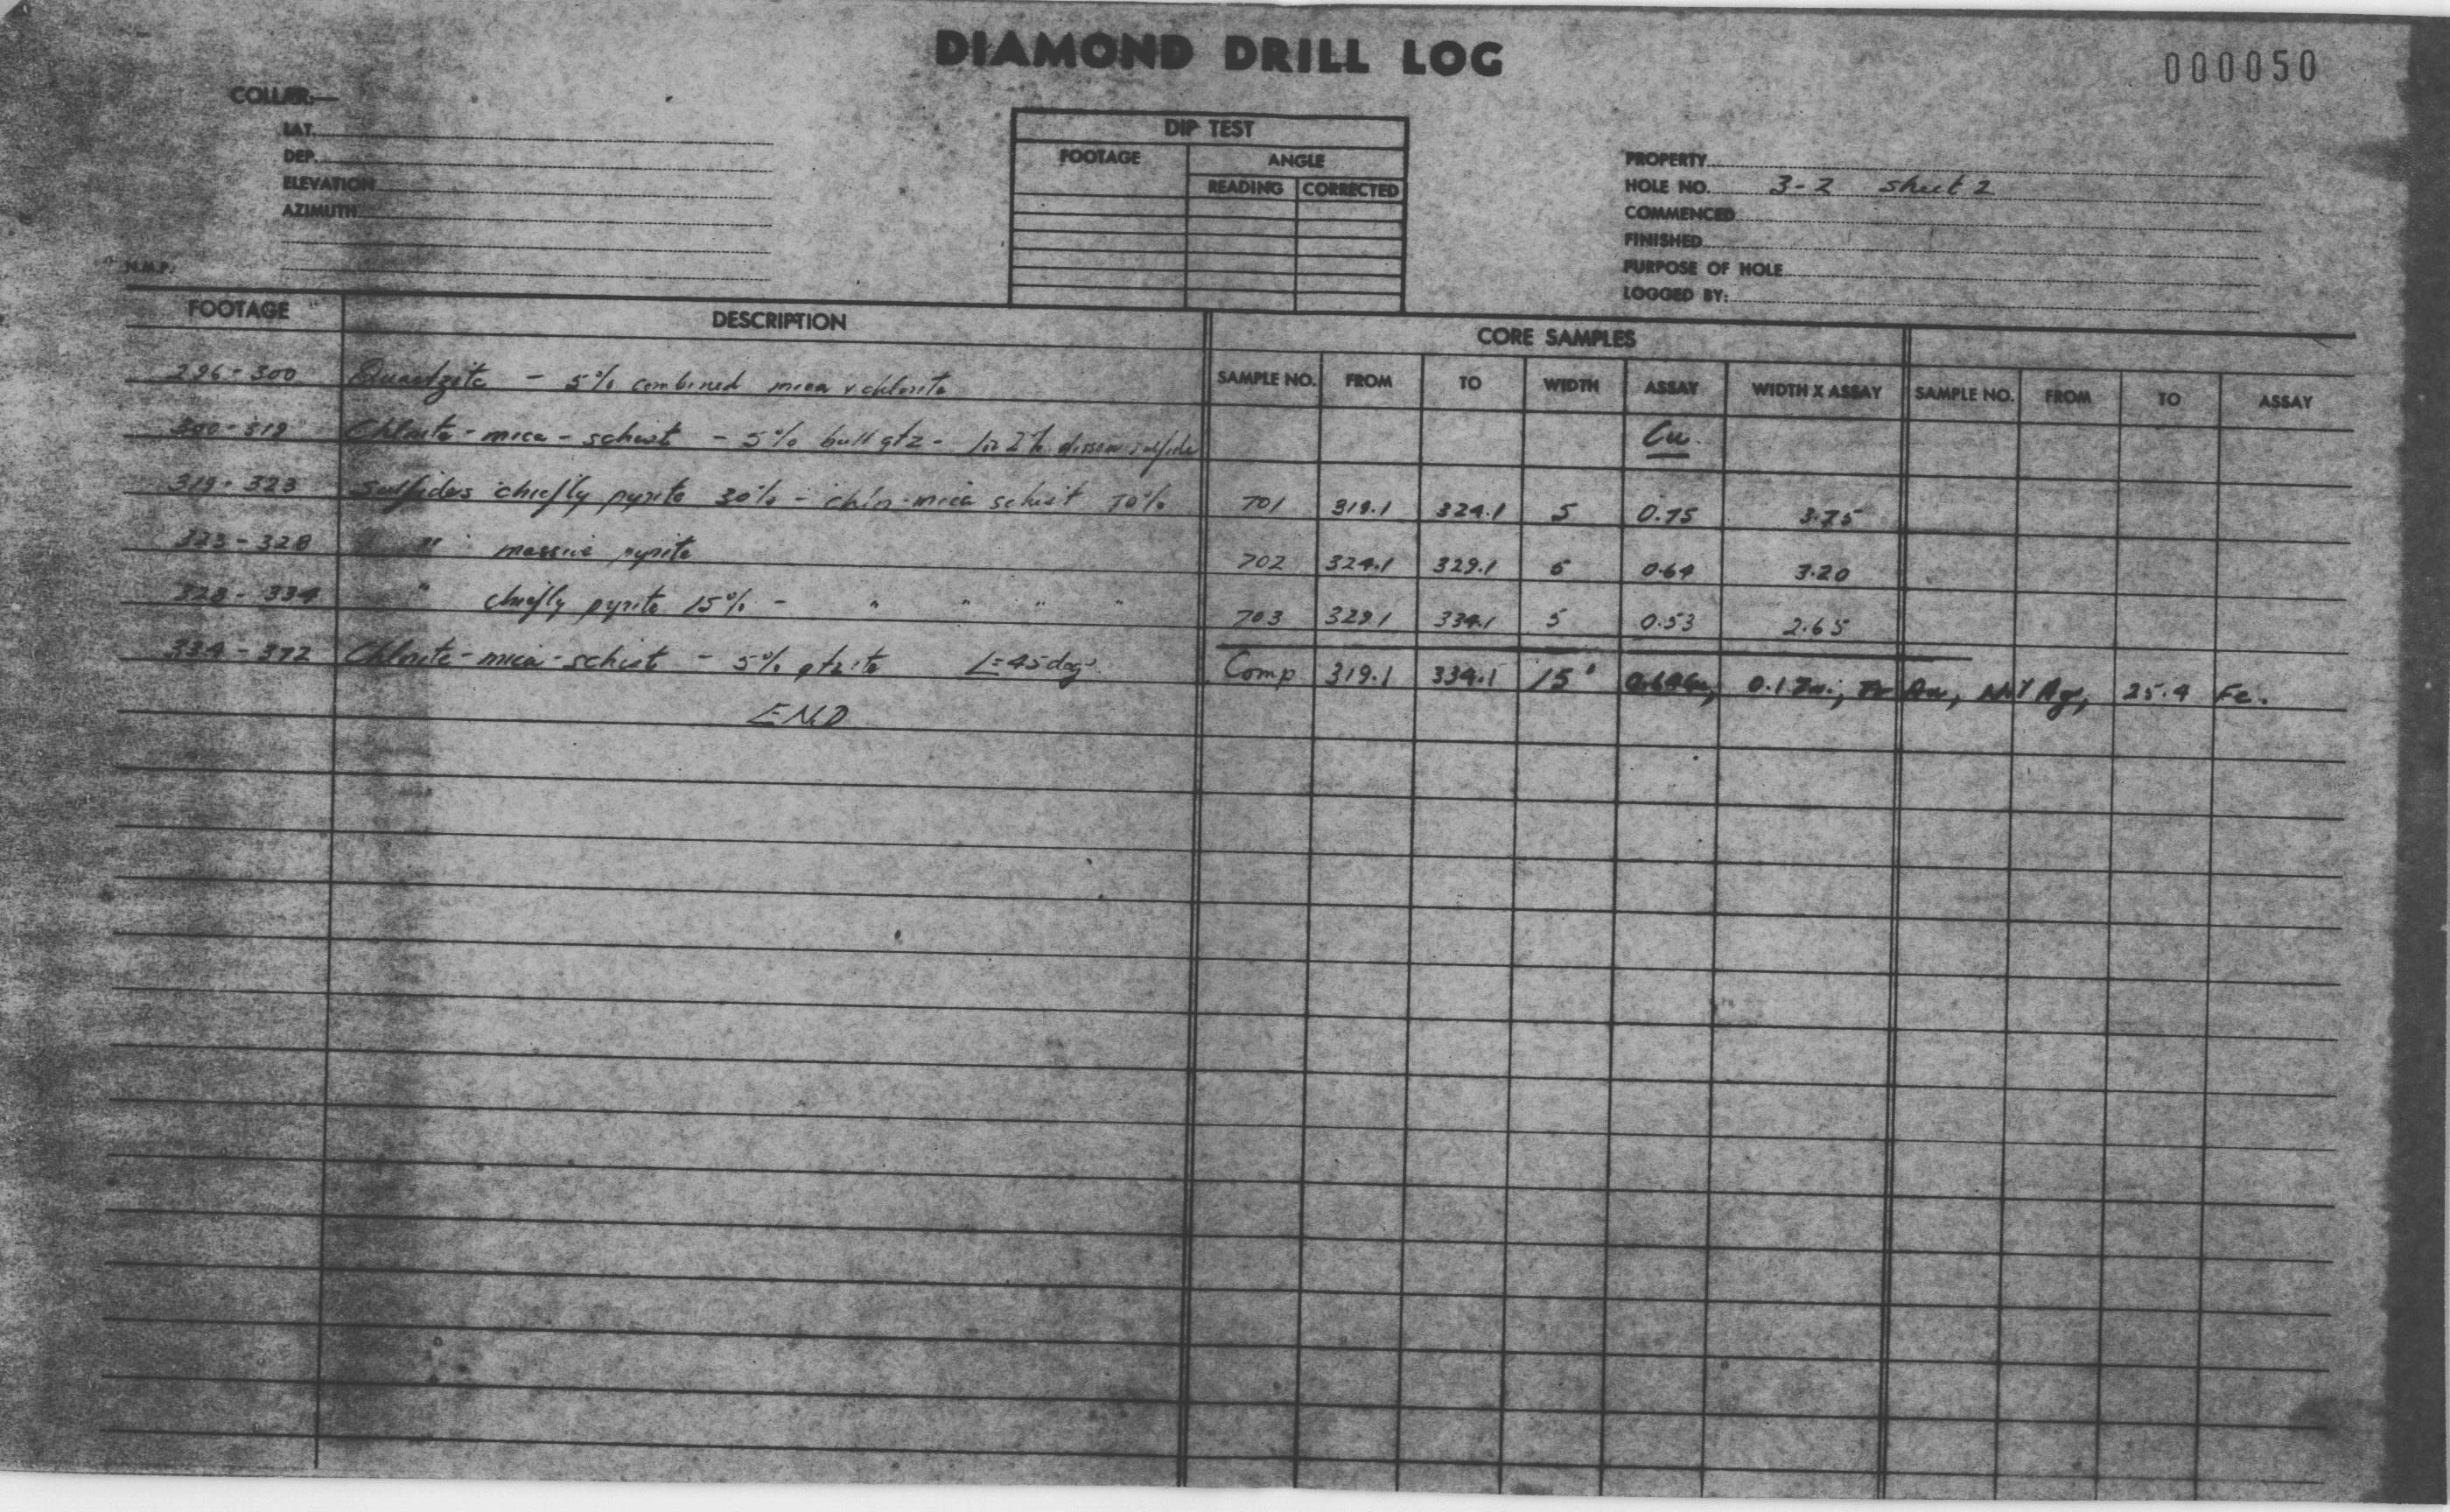 DIAMOND DRILL LOG
000050
COLLAR:—
LAT.
DEP.
ELEVATION
AZIMUTH
N.M.P.
DIP TEST
FOOTAGE ANGLE
READING CORRECTED
PROPERTY
HOLE NO. 3-2 sheet 2
COMMENCED
FINISHED
PURPOSE OF HOLE
LOGGED BY:
FOOTAGE DESCRIPTION CORE SAMPLES
SAMPLE NO. FROM TO WIDTH ASSAY WIDTH X ASSAY SAMPLE NO. FROM TO ASSAY
296-300 Quartzite - 5% combined mica & chlorite
Cu
300-319 Chlorite-mica-schist - 5% bull qtz - 1 to 2% dissem sulfide
319-323 Sulfides chiefly pyrite 30% - chlo-mica schist 70% 701 319.1 324.1 5 0.75 3.75
323-328 " " massive pyrite 702 324.1 329.1 5 0.64 3.20
328-334 " chiefly pyrite 15% - " " " " 703 329.1 334.1 5 0.53 2.65
334-372 Chlorite-mica-schist - 5% qtzite L=45deg. Comp 319.1 334.1 15' 0.64Cu, 0.1 Zn, Tr Au, Nil Ag, 25.4 Fe.
END